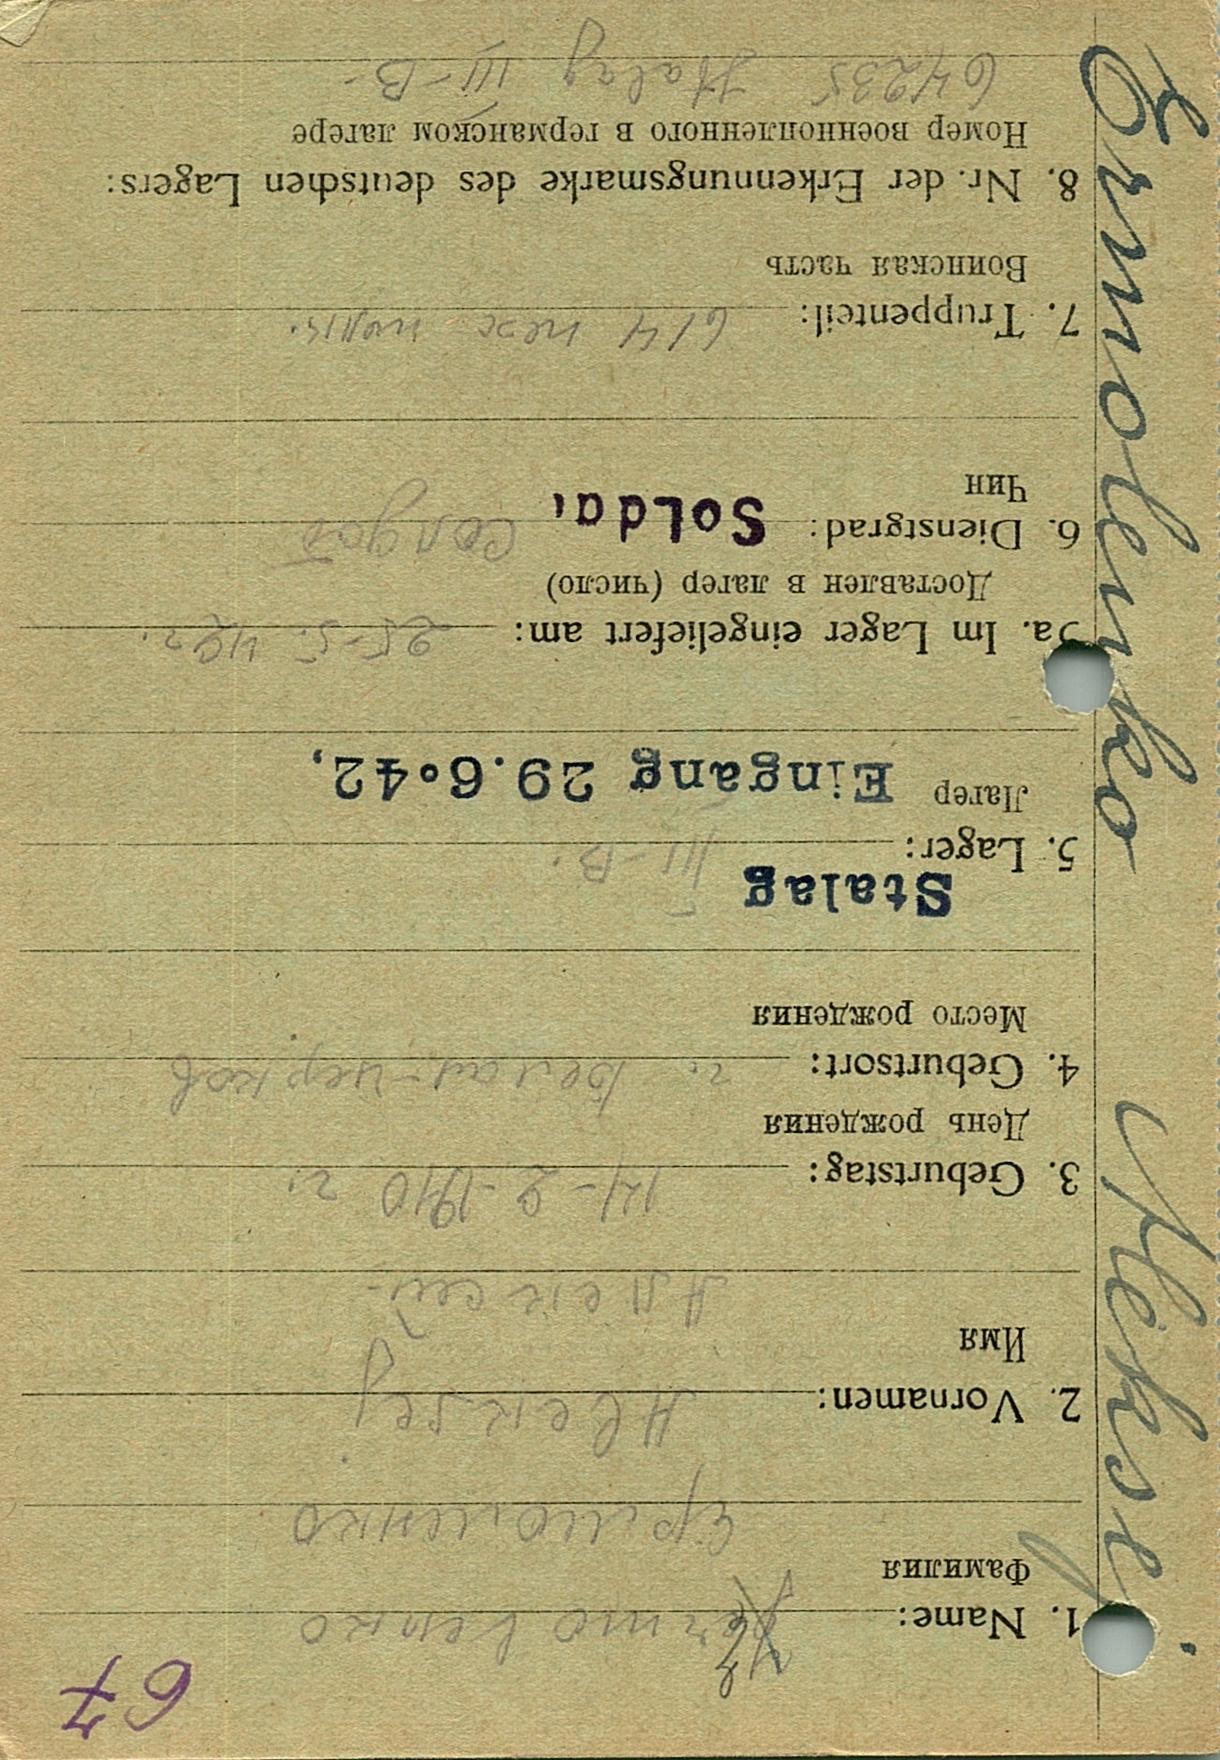 67
1. Name: Jermolenko
Фамилия
Ермоленко
2. Vornamen: Aleksej
Имя
Алексей
3. Geburtstag: 14-2-1910 г.
День рождения
4. Geburtsort: г. Белая-церковь
Место рождения
Stalag
5. Lager: III-B.
Лагер Eingang 29.6.42,
5a. Im Lager eingeliefert am: 25-5. 42 г.
Доставлен в лагер (число)
6. Dienstgrad: Solda, солдат
Чин
7. Truppenteil: 614 пех полк.
Воинская часть
8. Nr. der Erkennungsmarke des deutschen Lagers:
Номер военнопленного в германском лагере
64235 Stalag III-B-
Ermolenko Aleksej